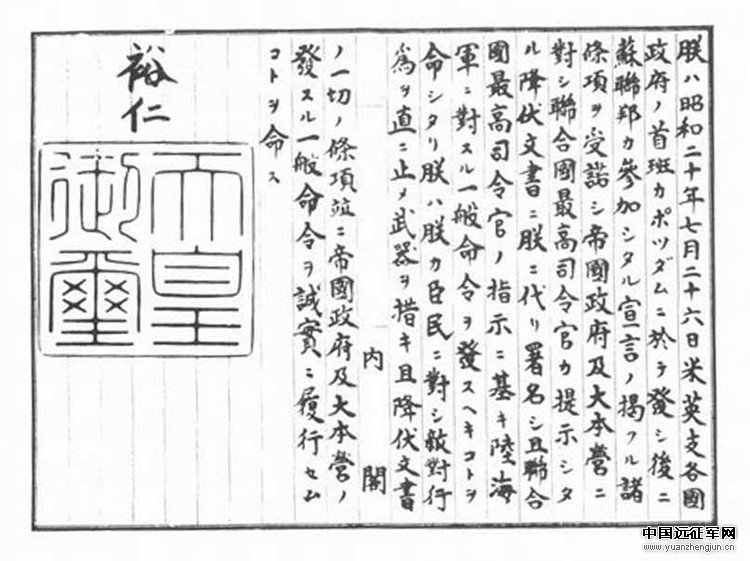 朕ハ昭和二十年七月二十六日米英支各國
政府ノ首班カポツダムニ於テ發シ後ニ
蘇聯邦カ參加シタル宣言ノ掲クル諸
條項ヲ受諾シ帝國政府及大本營ニ
對シ聯合國最高司令官カ提示シタ
ル降伏文書ニ朕ニ代リ署名シ且聯合
國最高司令官ノ指示ニ基キ陸海
軍ニ對スル一般命令ヲ發スヘキコトヲ
命シタリ朕ハ朕カ臣民ニ對シ敵對行
爲ヲ直ニ止メ武器ヲ措キ且降伏文書
内閣
ノ一切ノ條項竝ニ帝國政府及大本營ノ
發スル一般命令ヲ誠實ニ履行セム
コトヲ命ス
裕仁
天皇
御璽
中国远征军网
www.yuanzhengjun.cn